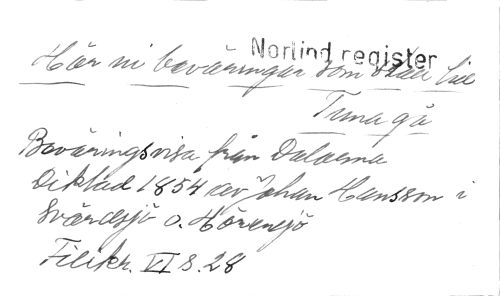 Norlind register
Hör ni beväringar som skall till
Tuna gå
Beväringsvisa från Dalarna
Diktad 1854 av Johan Hansson i
Svärdsjö o. Hörensjö
Filikr. VI s. 28